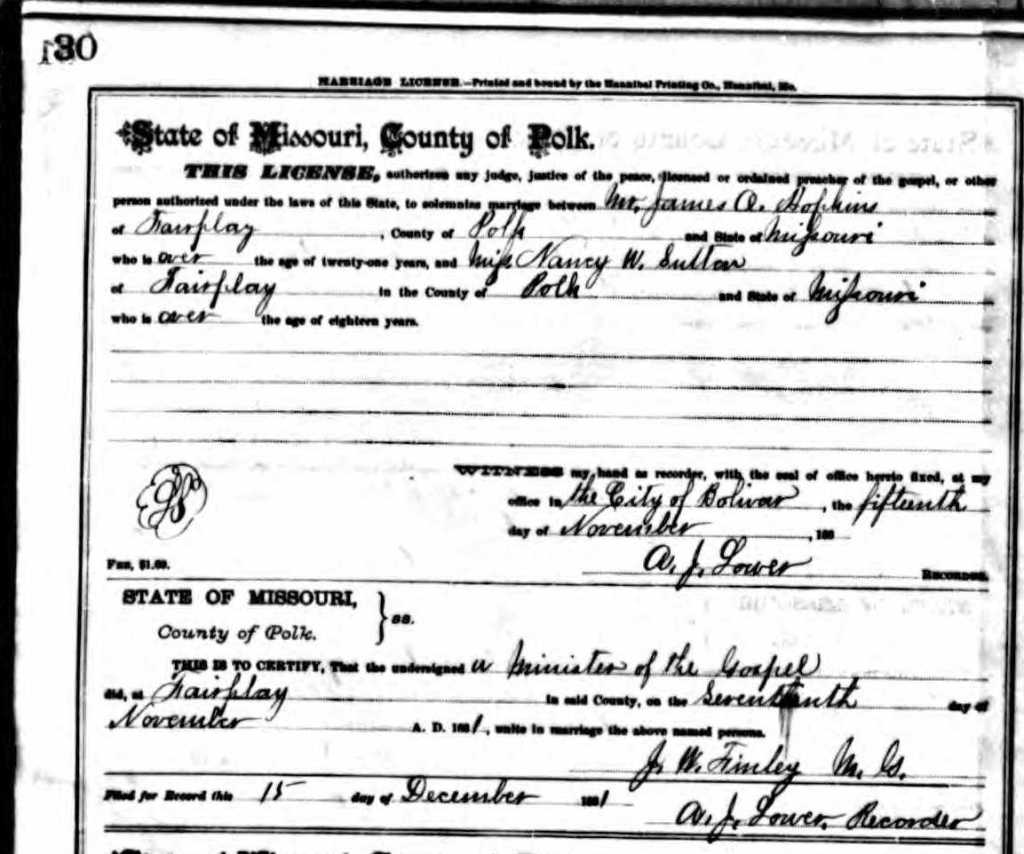 130
MARRIAGE LICENSE.—Printed and bound by the Hannibal Printing Co., Hannibal, Mo.
State of Missouri, County of Polk.
THIS LICENSE, authorizes any judge, justice of the peace, licensed or ordained preacher of the gospel, or other
person authorized under the laws of this State, to solemnize marriage between Mr. James A. Hopkins
of Fairplay, County of Polk and State of Missouri
who is over the age of twenty-one years, and Miss Nancy W. Sutton
of Fairplay in the County of Polk and State of Missouri
who is over the age of eighteen years.
WITNESS my hand as recorder, with the seal of office hereto fixed, at my
office in the City of Bolivar, the fifteenth
day of November, 188
A. J. Lower RECORDER.
FEE, $1.00.
STATE OF MISSOURI, } ss.
County of Polk.
THIS IS TO CERTIFY, That the undersigned a Minister of the Gospel
did, at Fairplay in said County, on the Seventeenth day of
November A. D. 1881, unite in marriage the above named persons.
J. W. Finley M. G.
Filed for Record this 15 day of December 1881
A. J. Lower, Recorder